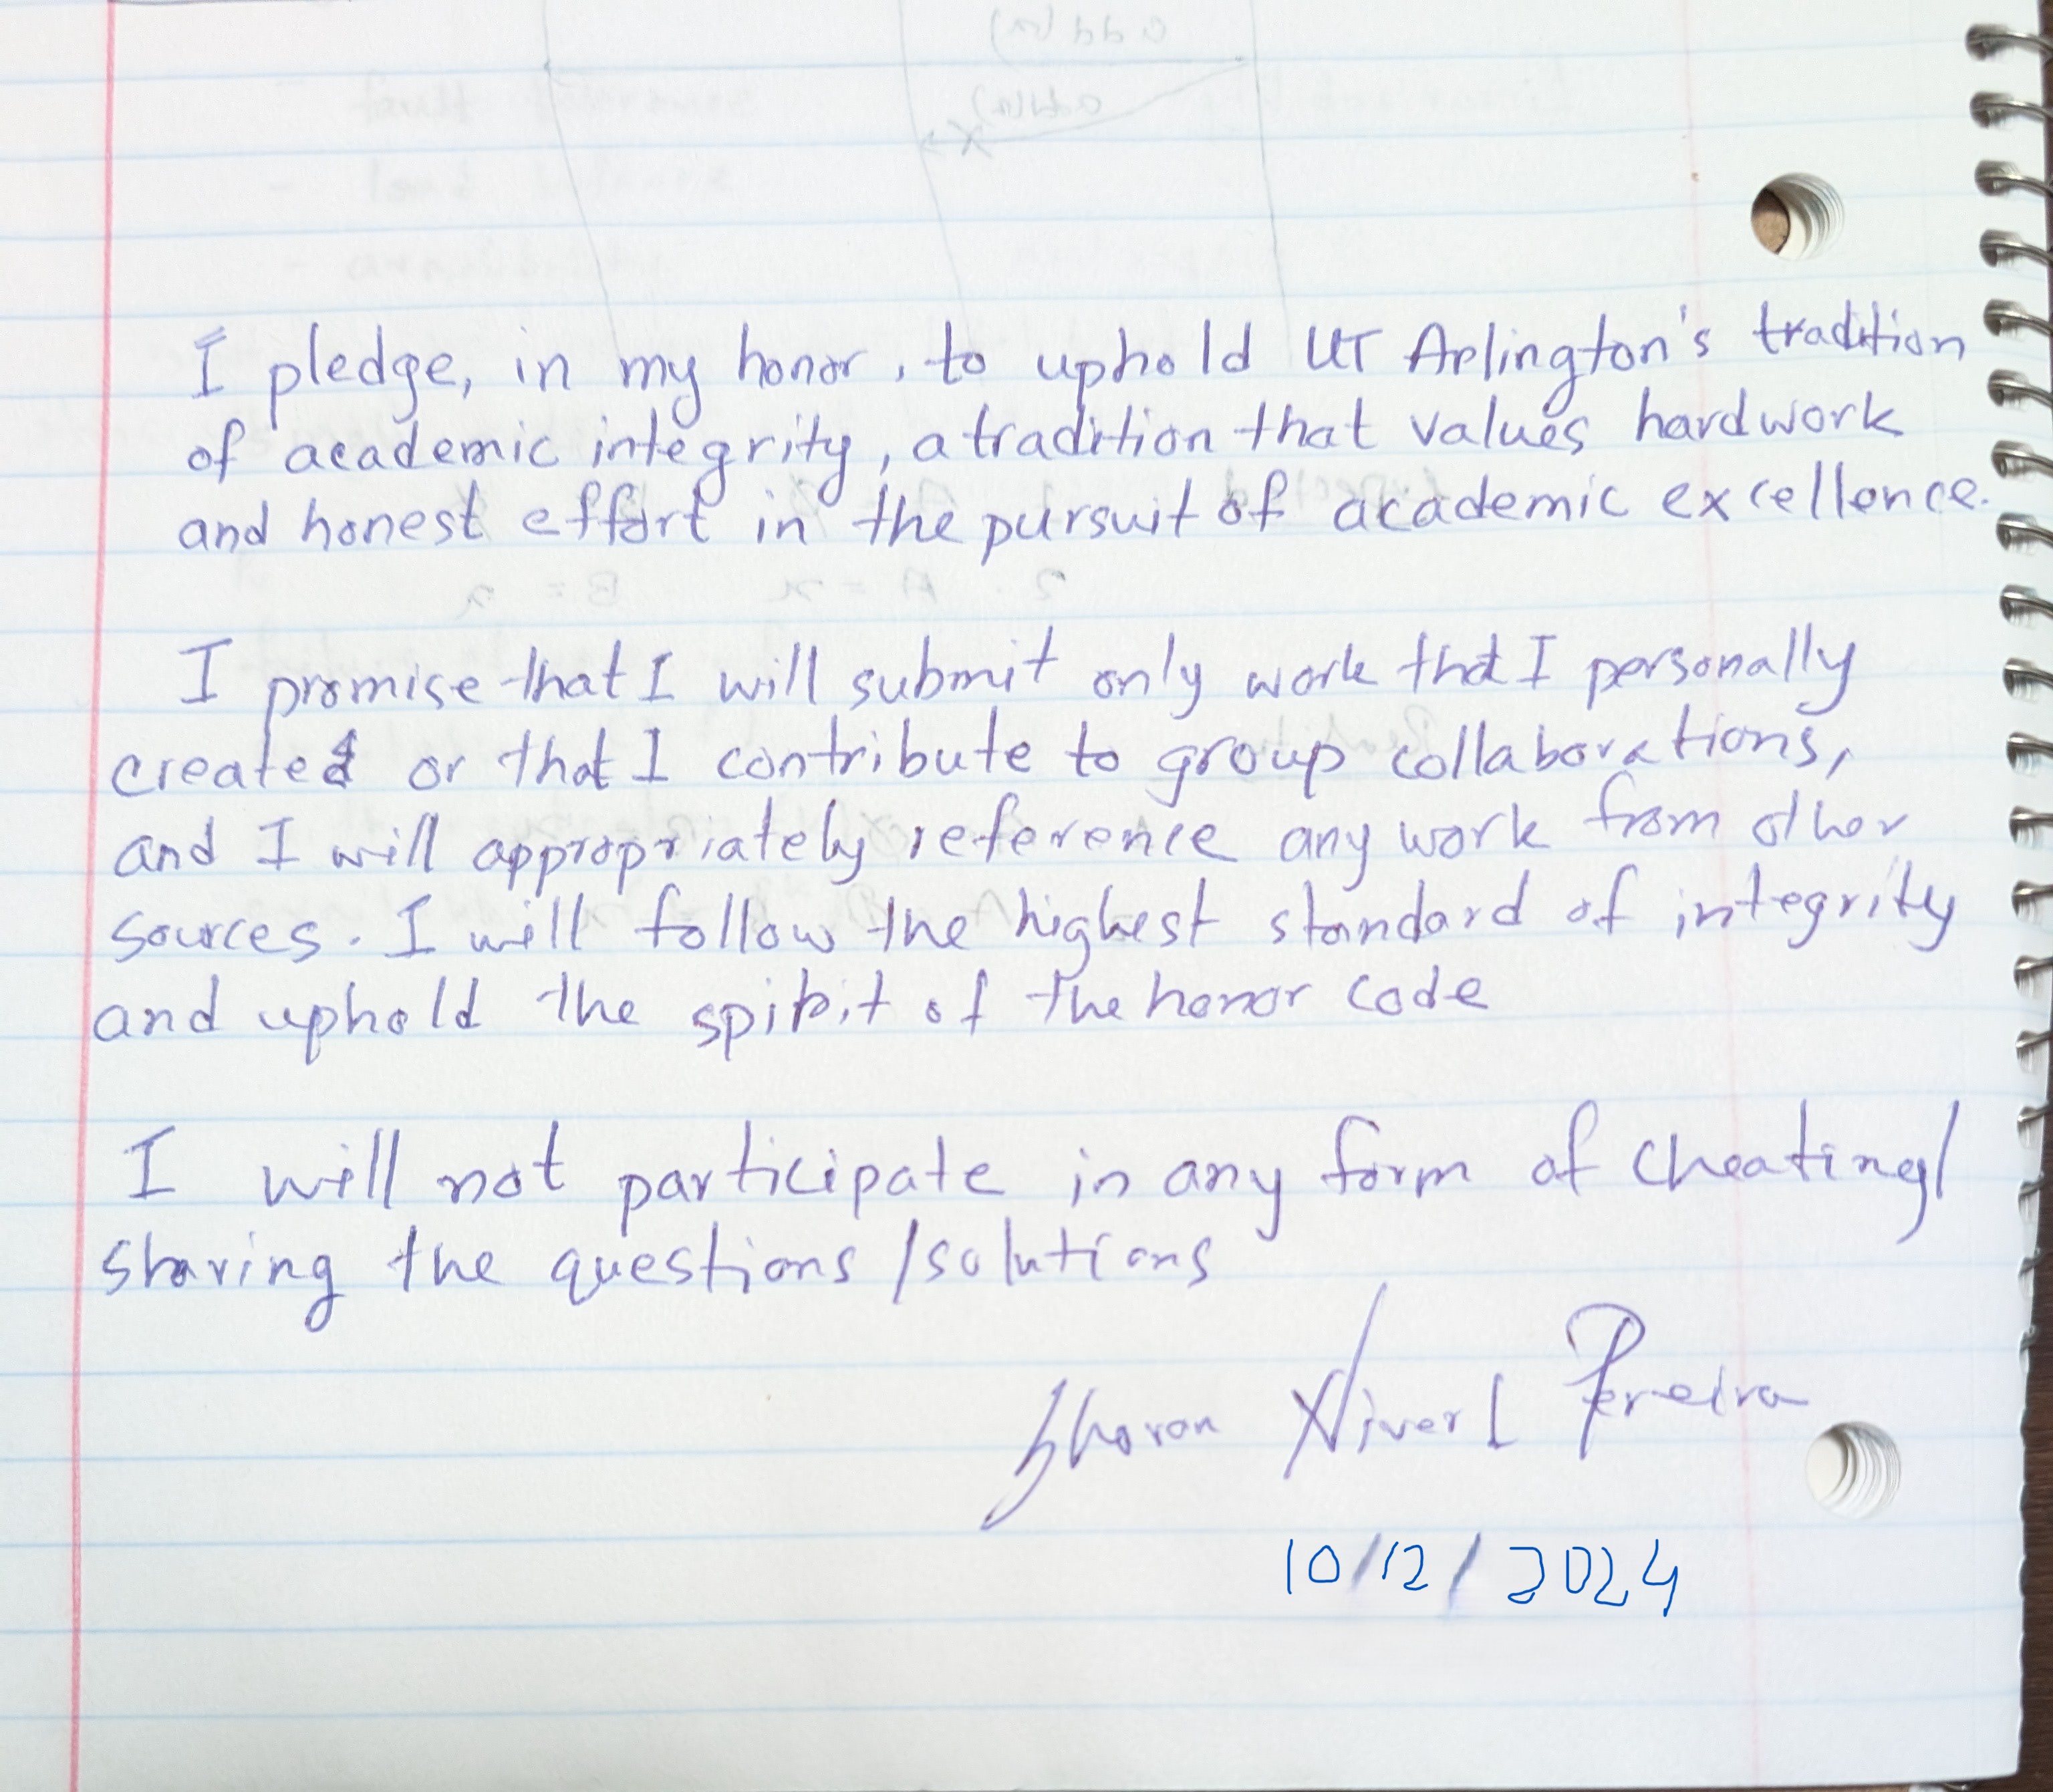 I pledge, in my honor, to uphold UT Arlington's tradition
of academic integrity, a tradition that values hardwork
and honest effort in the pursuit of academic excellence.
I promise that I will submit only work that I personally
created or that I contribute to group collaborations,
and I will appropriately reference any work from other
sources. I will follow the highest standard of integrity
and uphold the spirit of the honor code
I will not participate in any form of cheating/
sharing the questions /solutions
Sharon Pereira
10/12/2024